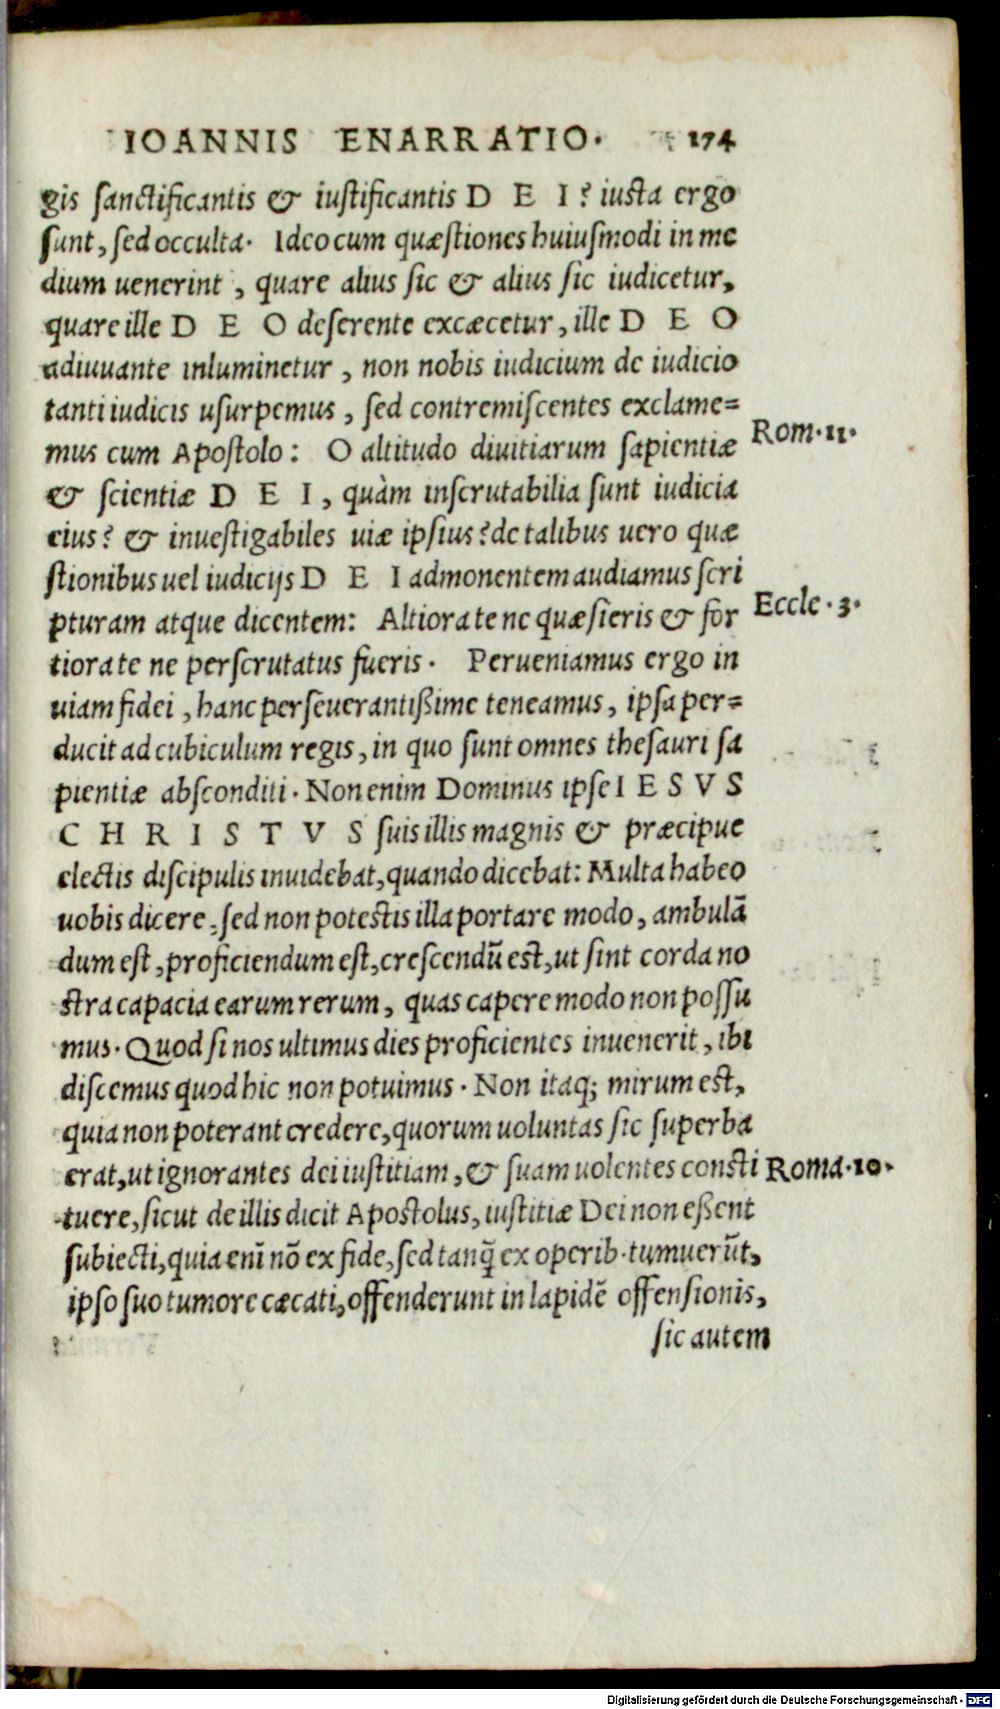 IOANNIS ENARRATIO. 174
gis sanctificantis & iustificantis D E I? iusta ergo
sunt, sed occulta. Ideo cum quæstiones huiusmodi in me
dium uenerint, quare alius sic & alius sic iudicetur,
quare ille D E O deserente excæcetur, ille D E O
adiuuante inluminetur, non nobis iudicium de iudicio
tanti iudicis usurpemus, sed contremiscentes exclame=
mus cum Apostolo: O altitudo diuitiarum sapientiæ
Rom. 11.
& scientiæ D E I, quàm inscrutabilia sunt iudicia
eius? & inuestigabiles uiæ ipsius? de talibus uero quæ
stionibus uel iudicijs D E I admonentem audiamus scri
pturam atque dicentem: Altiora te ne quæsieris & for
Eccle. 3.
tiora te ne perscrutatus fueris. Perueniamus ergo in
uiam fidei, hanc perseuerantißime teneamus, ipsa per=
ducit ad cubiculum regis, in quo sunt omnes thesauri sa
pientiæ absconditi. Non enim Dominus ipse I E S V S
C H R I S T V S suis illis magnis & præcipue
electis discipulis inuidebat, quando dicebat: Multa habeo
uobis dicere, sed non potestis illa portare modo, ambulā
dum est, proficiendum est, crescendū est, ut sint corda no
stra capacia earum rerum, quas capere modo non possu
mus. Quod si nos ultimus dies proficientes inuenerit, ibi
discemus quod hic non potuimus. Non itaq; mirum est,
quia non poterant credere, quorum uoluntas sic superba
erat, ut ignorantes dei iustitiam, & suam uolentes consti
Roma. 10.
tuere, sicut de illis dicit Apostolus, iustitiæ Dei non eßent
subiecti, quia enī nō ex fide, sed tanq̄ ex operib. tumuerūt,
ipso suo tumore cæcati, offenderunt in lapidē offensionis,
sic autem
Digitalisierung gefördert durch die Deutsche Forschungsgemeinschaft - DFG